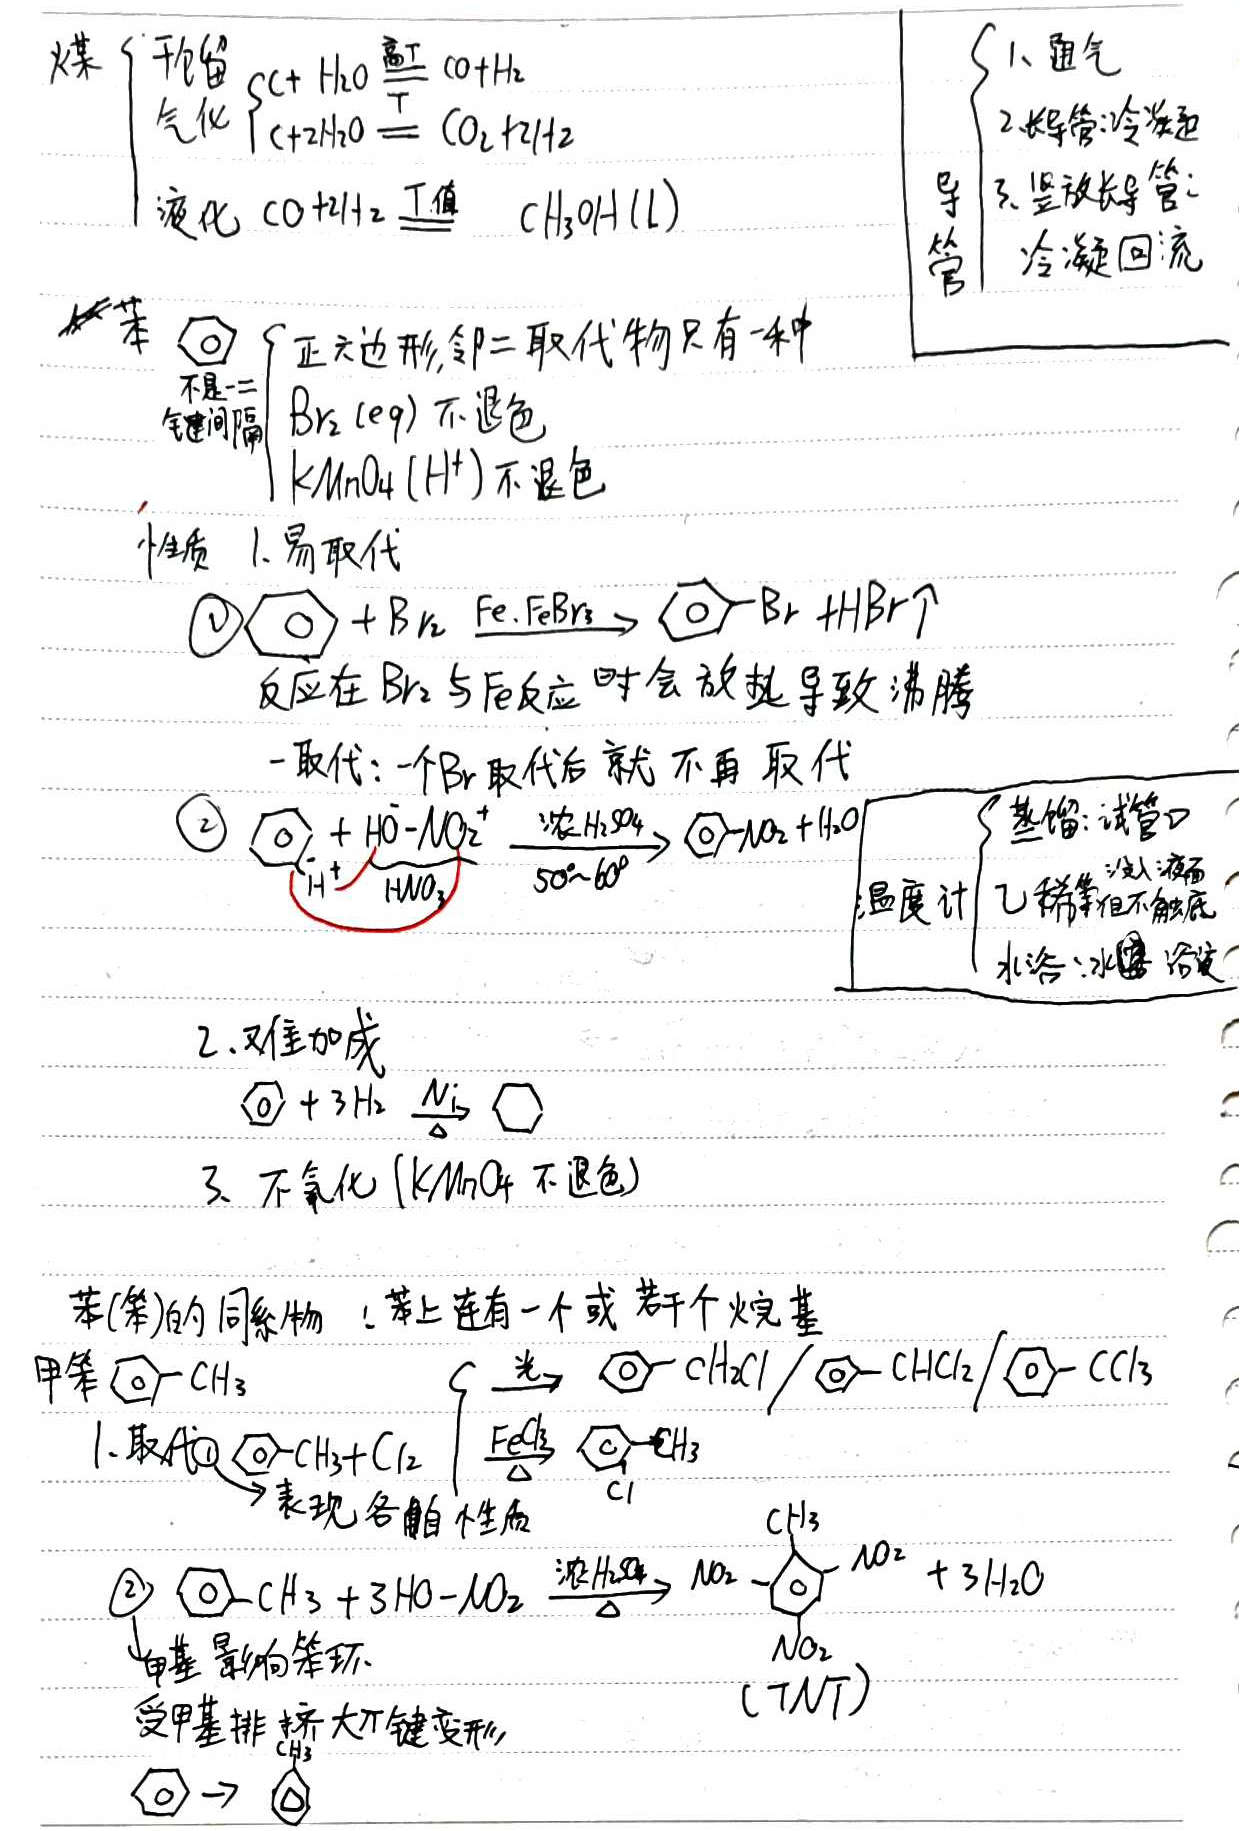 煤 干馏
气化 C+H2O 高T CO+H2
C+2H2O T CO2+2H2
液化 CO+2H2 T.值 CH3OH(l)
导管
1、通气
2.长导管:冷凝
3、竖放长导管:
冷凝回流
苯 正六边形,邻二取代物只有一种
不是一二
键间隔
Br2(eq)不退色
KMnO4(H+)不退色
性质 1.易取代
① +Br2 Fe.FeBr3 → -Br +HBr↑
反应在Br2与Fe反应时会放热导致沸腾
一取代:一个Br取代后就不再取代
② + HO-NO2+ 浓H2SO4 50°~60° → -NO2+H2O
H+ HNO3
温度计
蒸馏:试管口
乙稀等 没入液面
但不触底
水浴:水 浴液
2.难加成
+3H2 Ni △ →
3、不氧化(KMnO4不退色)
苯(笨)的同系物:苯上连有一个或若干个烷基
甲笨 -CH3
光 → -CH2Cl / -CHCl2 / -CCl3
1.取代① -CH3+Cl2 FeCl3 △ → CH3
Cl
→表现各自性质
② -CH3+3HO-NO2 浓H2SO4 △ → NO2- CH3 -NO2 +3H2O
NO2
(TNT)
甲基影响笨环.
受甲基排挤大π键变形
→ CH3